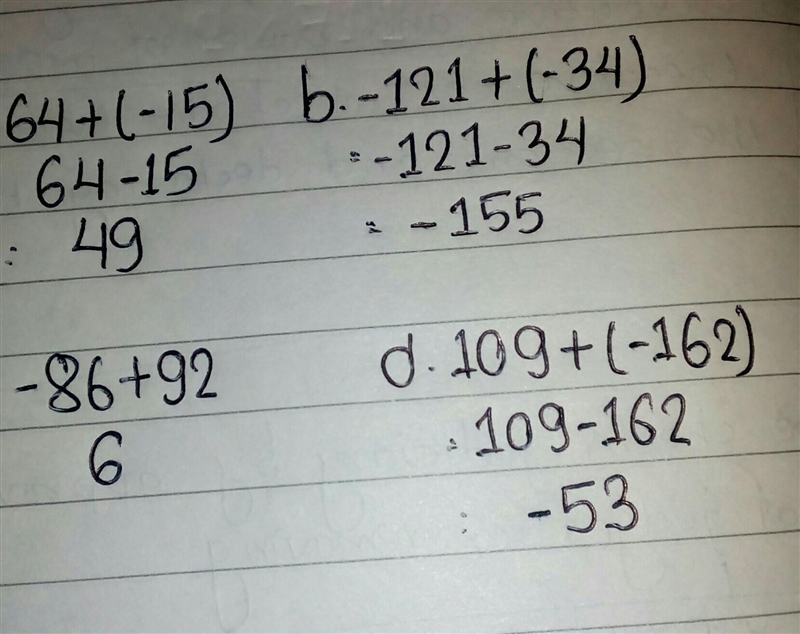 64+(-15)
64-15
: 49
b. -121+(-34)
= -121-34
= -155
-86+92
6
d. 109+(-162)
: 109-162
: -53